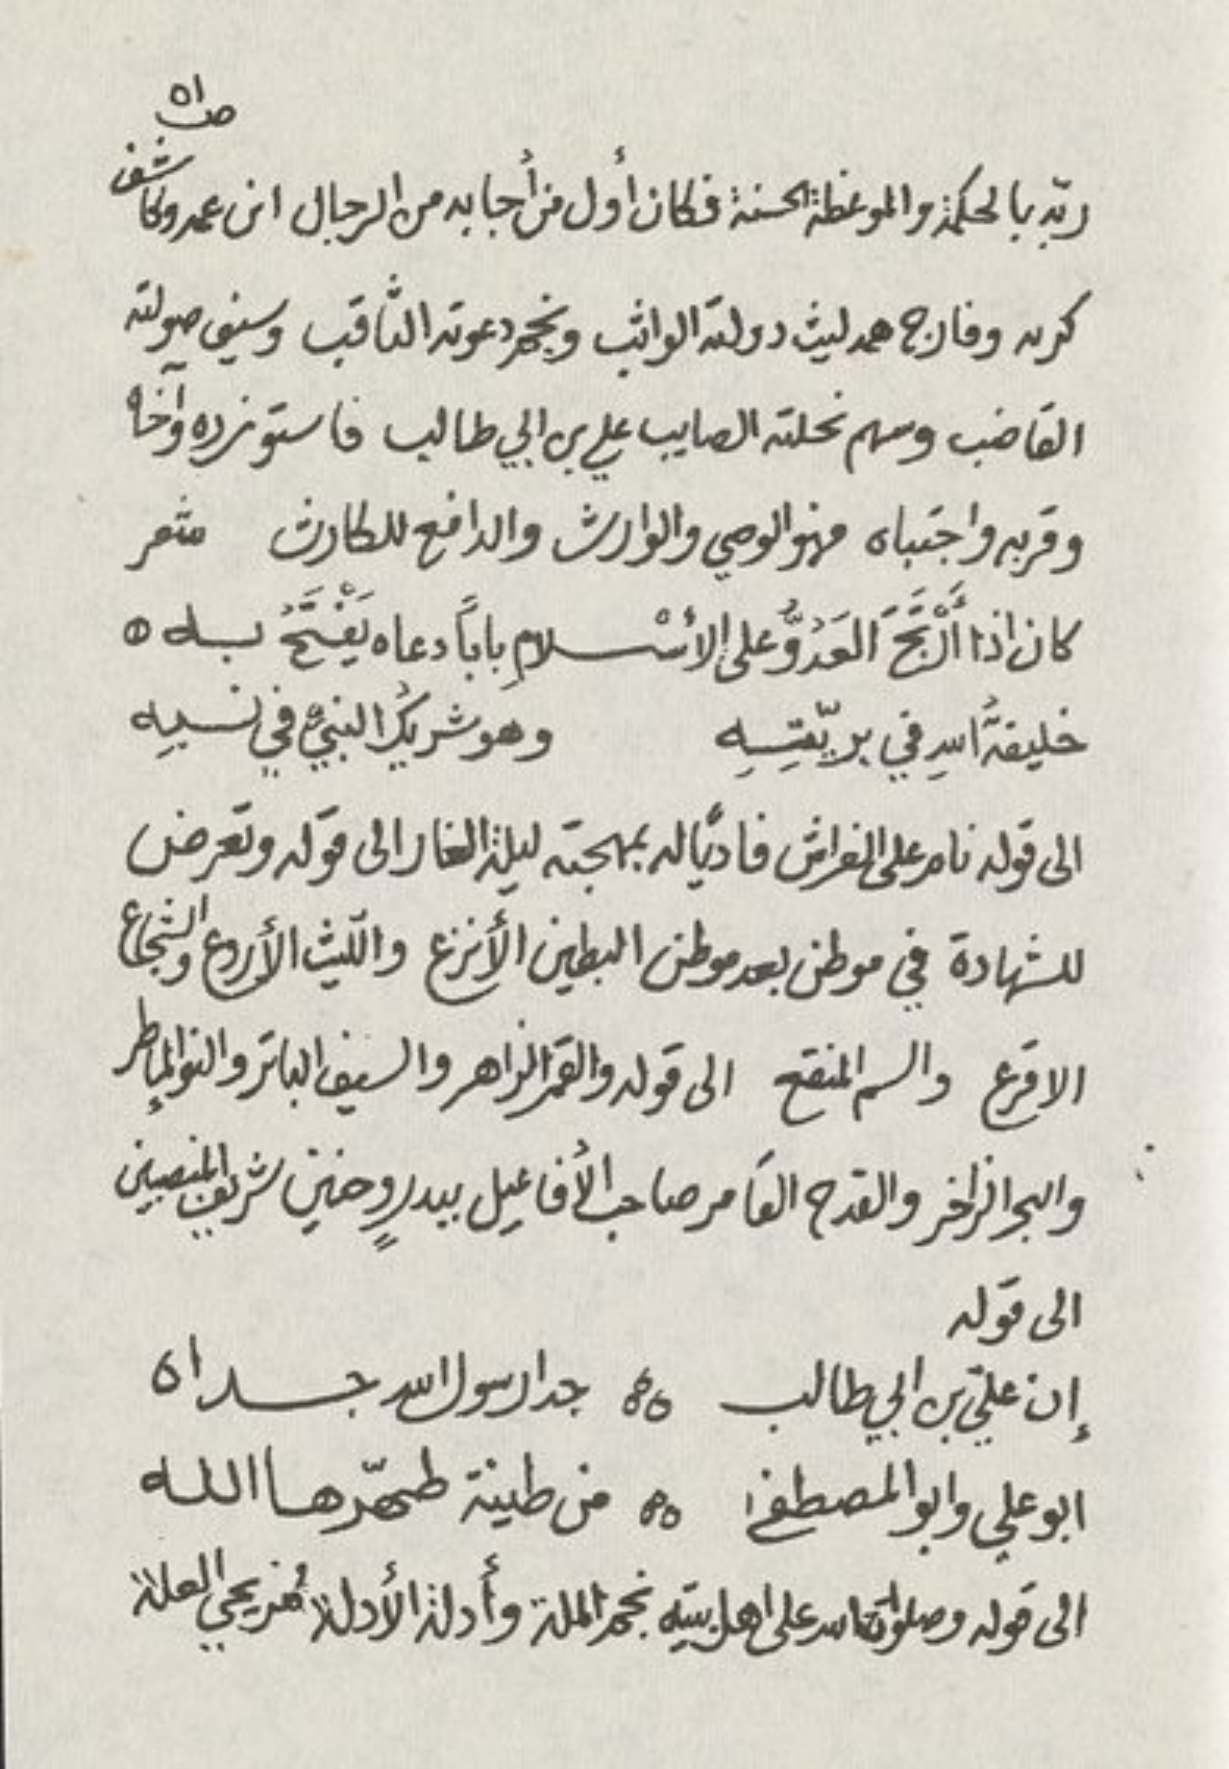 ص ٥١
ربّه بالحكمة والموعظة الحسنة فكان أول من أجابه من الرجال ابن عمه وكاشف
كربه وفارج همه ليث دولته الواثب ونجم دعوته الثّاقب وسيف صولته
القاضب وسهم نحلته الصايب علي بن ابي طالب فاستوزره وآخاه
وقربه واجتباه فهو الوصي والوارث والدافع للكارث شعر
كان اذا أرْتَجَ العَدُوُّ على الأسْلامِ باباً دعاه يَفْتَحُ به
خليفةُ اللهِ في بريّتِهِ وهو شريكُ النبيّ في نسبِه
الى قوله نام على الفراش فاديًا له بمهجته ليلة الغار الى قوله وتعرض
للشهادة في موطن بعد موطن البطين الأنزع والليث الأروع والشجاع
الاقرع والسم المنقع الى قوله والقمر الزاهر والسيف الباتر والنو الماطر
والبحر الزاخر والقدح القامر صاحب الأفاعيل ببدرٍ وحنين شريف المنصبين
الى قوله
إن علىّ بن ابي طالب جدا رسول الله جداه
ابو علي وابو المصطفى من طينة طهّرها الله
الى قوله وصلوات الله على اهل بيته نجوم الملة وأدلة الأدلة مُزيحي العلة